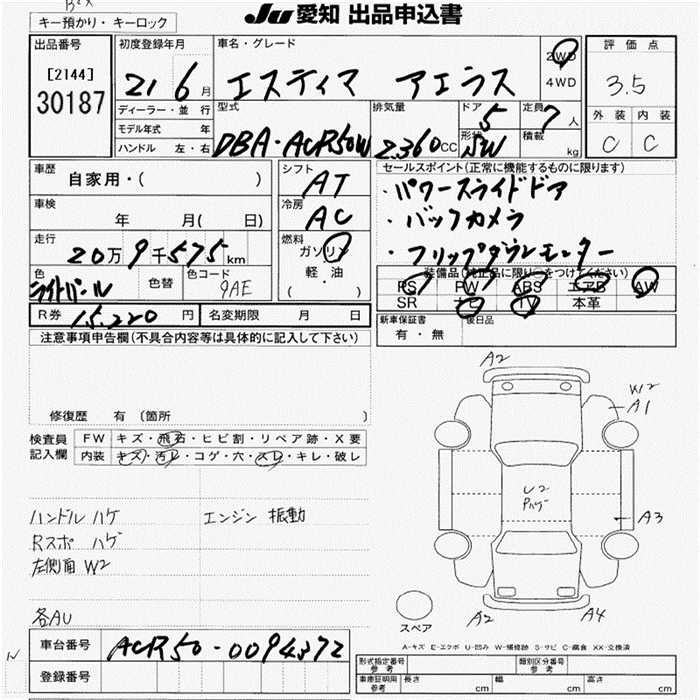 Ju 愛知 出品申込書
キー預かり・キーロック
出品番号
[2144]
30187
初度登録年月
21 6月
車名・グレード
エスティマ アエラス
2WD
4WD
評価点
3.5
外装 内装
C C
ディーラー・並行
モデル年式 年
ハンドル 左・右
型式
DBA-ACR50W
排気量
2,360cc
ドア
5
定員
7人
形状
SW
積載
kg
車歴
自家用・( )
車検
年 月( 日)
走行
20万9千575km
色
ライトパール
色替
色コード
9AE
シフト
AT
冷房
AC
燃料
ガソリン
軽・油
( )
セールスポイント(正常に機能するものに限ります)
・パワースライドドア
・バックカメラ
・フリップダウンモニター
装備品(純正品に限り○をつけてください)
PS PW ABS エアB AW
SR ナビ TV 本革
R券 15,220円
名変期限 月 日
新車保証書
有・無
後日品
注意事項申告欄(不具合内容等は具体的に記入して下さい)
修復歴 有(箇所 )
検査員
記入欄
FW キズ・飛石・ヒビ割・リペア跡・X要
内装 キズ・汚レ・コゲ・穴・スレ・キレ・破レ
ハンドル ハゲ
エンジン 振動
Rスポ ハゲ
左側面 W2
各AU
車台番号
ACR50-0094372
登録番号
A2
W2
A1
U2
Pハゲ
A3
A2
A4
スペア
A-キズ E-エクボ U-凹み W-補修跡 S-サビ C-腐食 XX-交換済
形式指定番号
参考
類別区分番号
参考
車庫証明用
参考
長さ cm
幅 cm
高さ cm